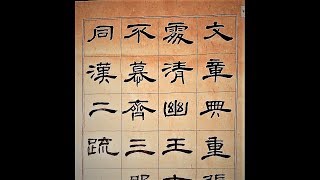 文章典重張
處清幽王
不慕齊三
同漢二疏